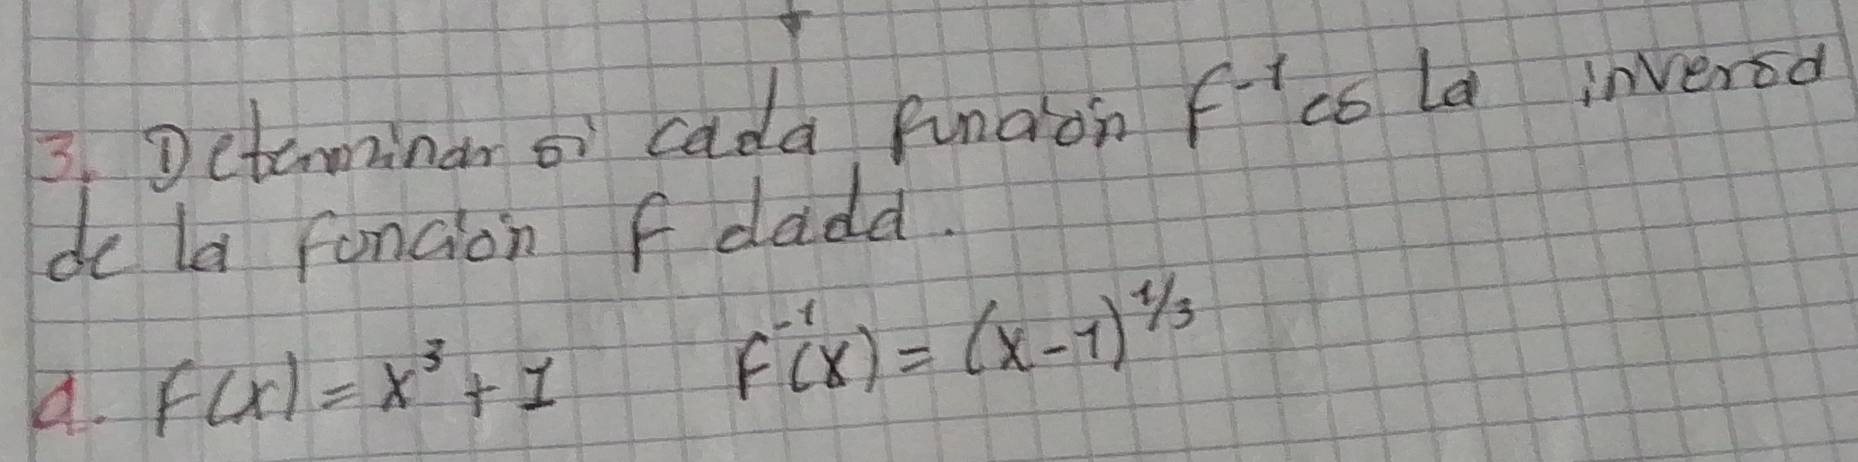 3. Determinar si cada función f⁻¹ es la inversa
de la función f dada.
a. F(x) = x³ + 1 F⁻¹(x) = (x-1)^1/3